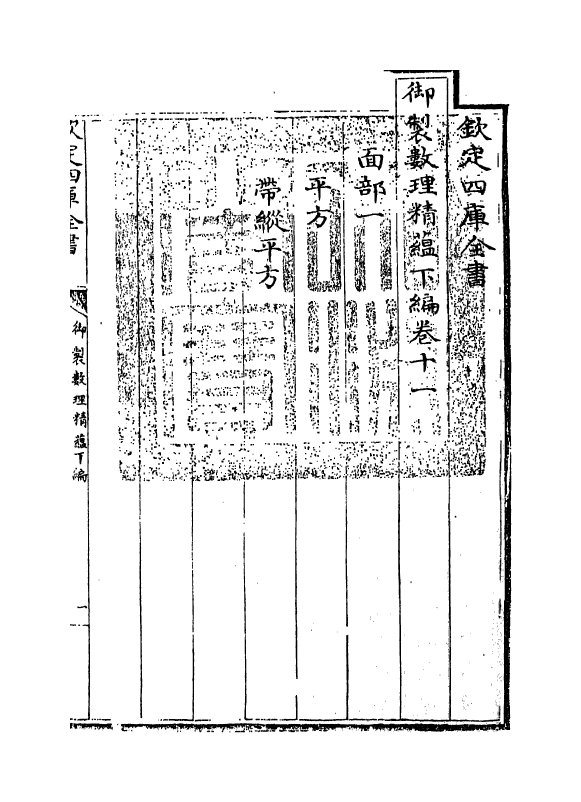 欽定四庫全書
御製數理精蘊下編卷十一
面部一
平方
帶縱平方
欽定四庫全書
御製數理精蘊下編
一